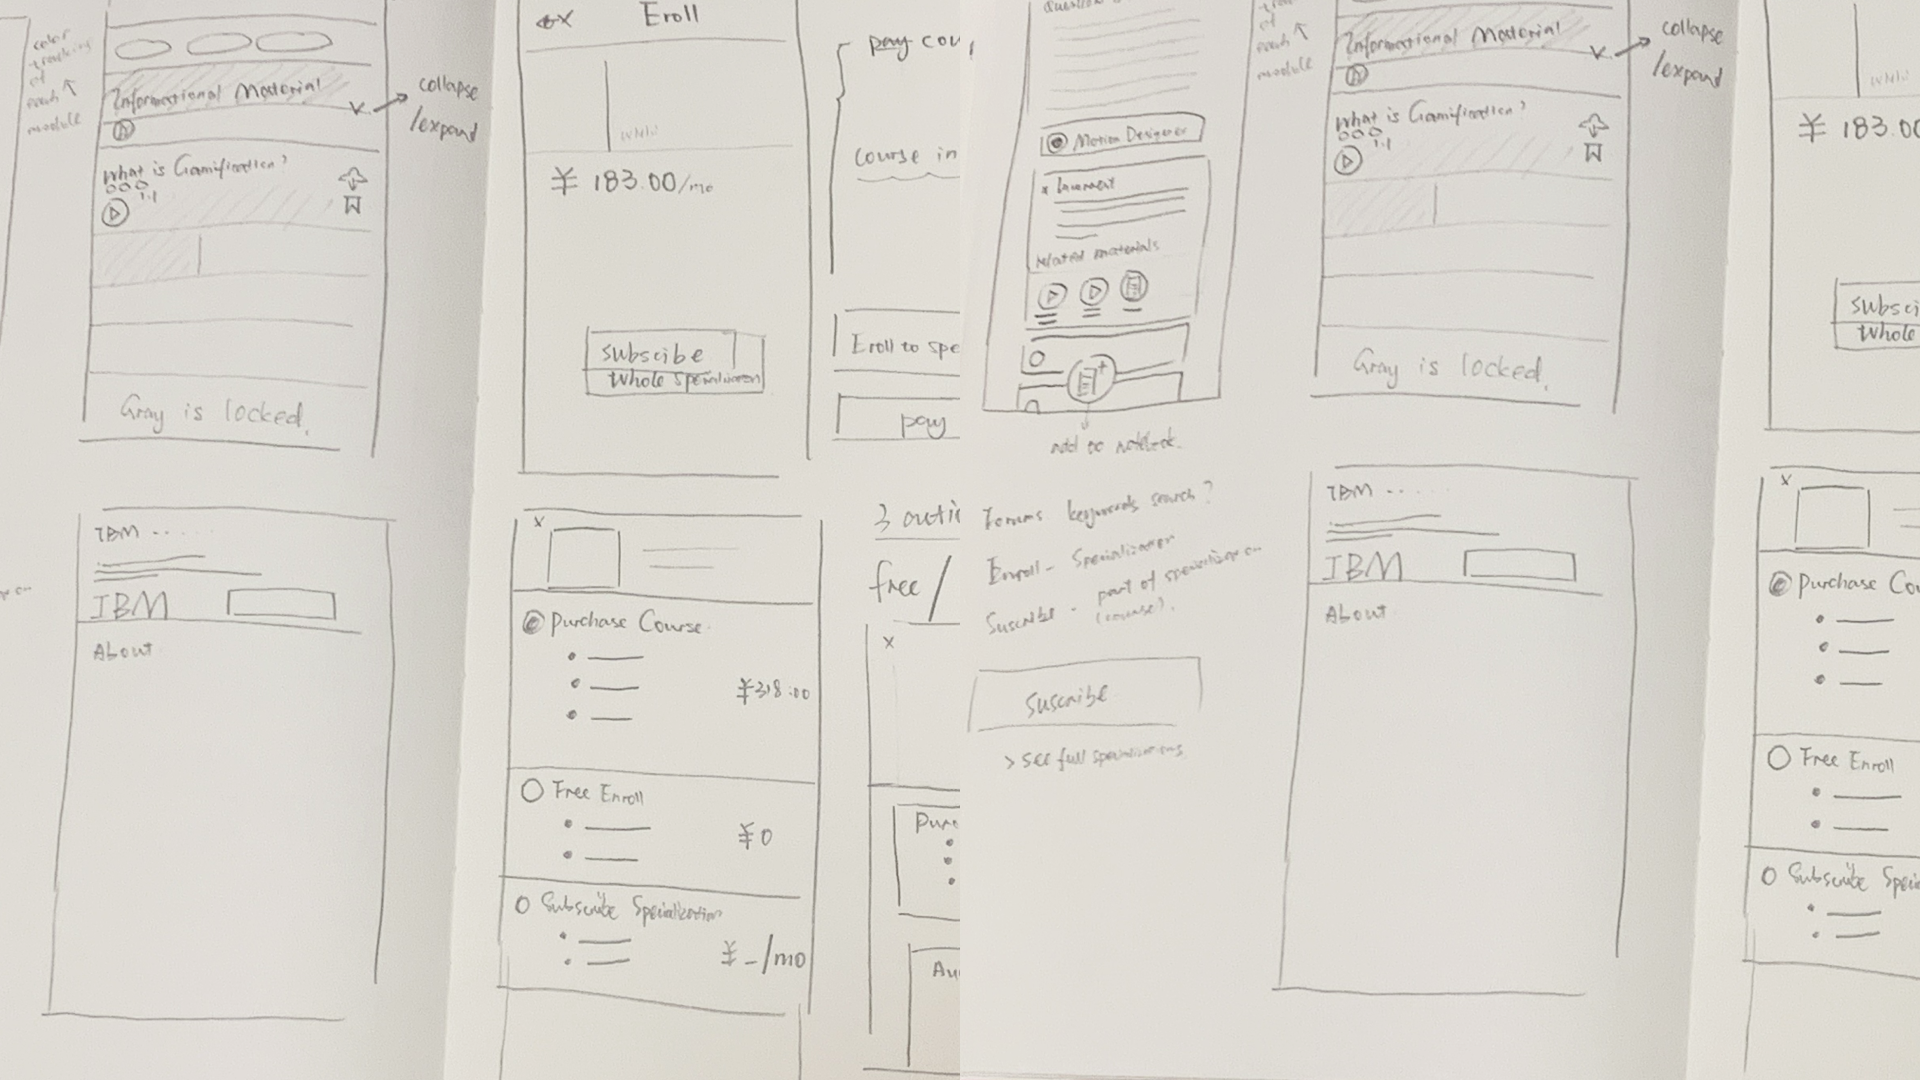 color
tracking
of
each
module
Informational Material
collapse
/expand
What is Gamification?
1.1
Gray is locked.
IBM .....
IBM
About
Eroll
¥ 183.00/mo
subscibe
Whole
x
Purchase Course
¥318.00
Free Enroll
¥0
Subscribe Specialization
¥-/mo
pay cou
course in
Eroll to spe
pay
3
free/
x
Au
Question
Motion Designer
x
Related materials
add to notebook.
Forums keywords search?
Enroll -
Suscribe - part of
(course).
Suscribe
> see full specializations
of
each
module
Informational Material
collapse
/expand
What is Gamification?
1.1
Gray is locked.
IBM .....
IBM
About
¥ 183.00
subsci
Whole
x
Purchase Cou
Free Enroll
Subscribe Specia